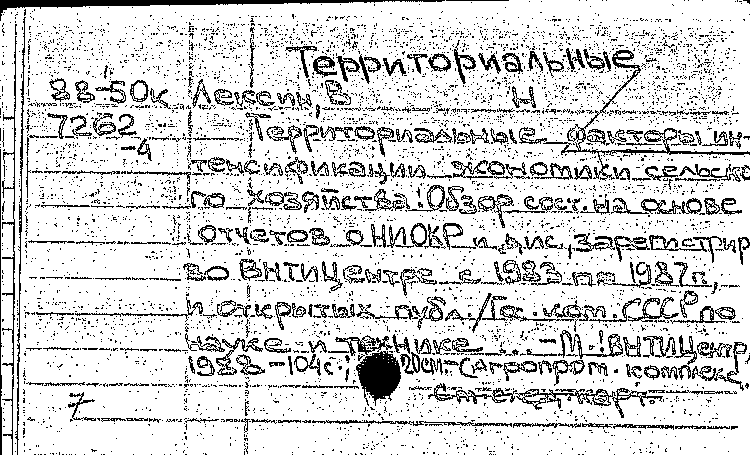 Территориальные
88-50к Лексин, В Н
7262 Территориальные факторы ин-
-4
тенсификации экономики сельско
го хозяйства: Обзор сост. на основе
отчетов о НИОКР и дис., зарегистрир
во ВНТИЦентре с 1983 по 1987г.,
и открытых публ./Гос. ком. СССР по
науке и технике ... -М.: ВНТИЦентр,
1988 -104с.; 20см- (Агропром. комплекс.
7